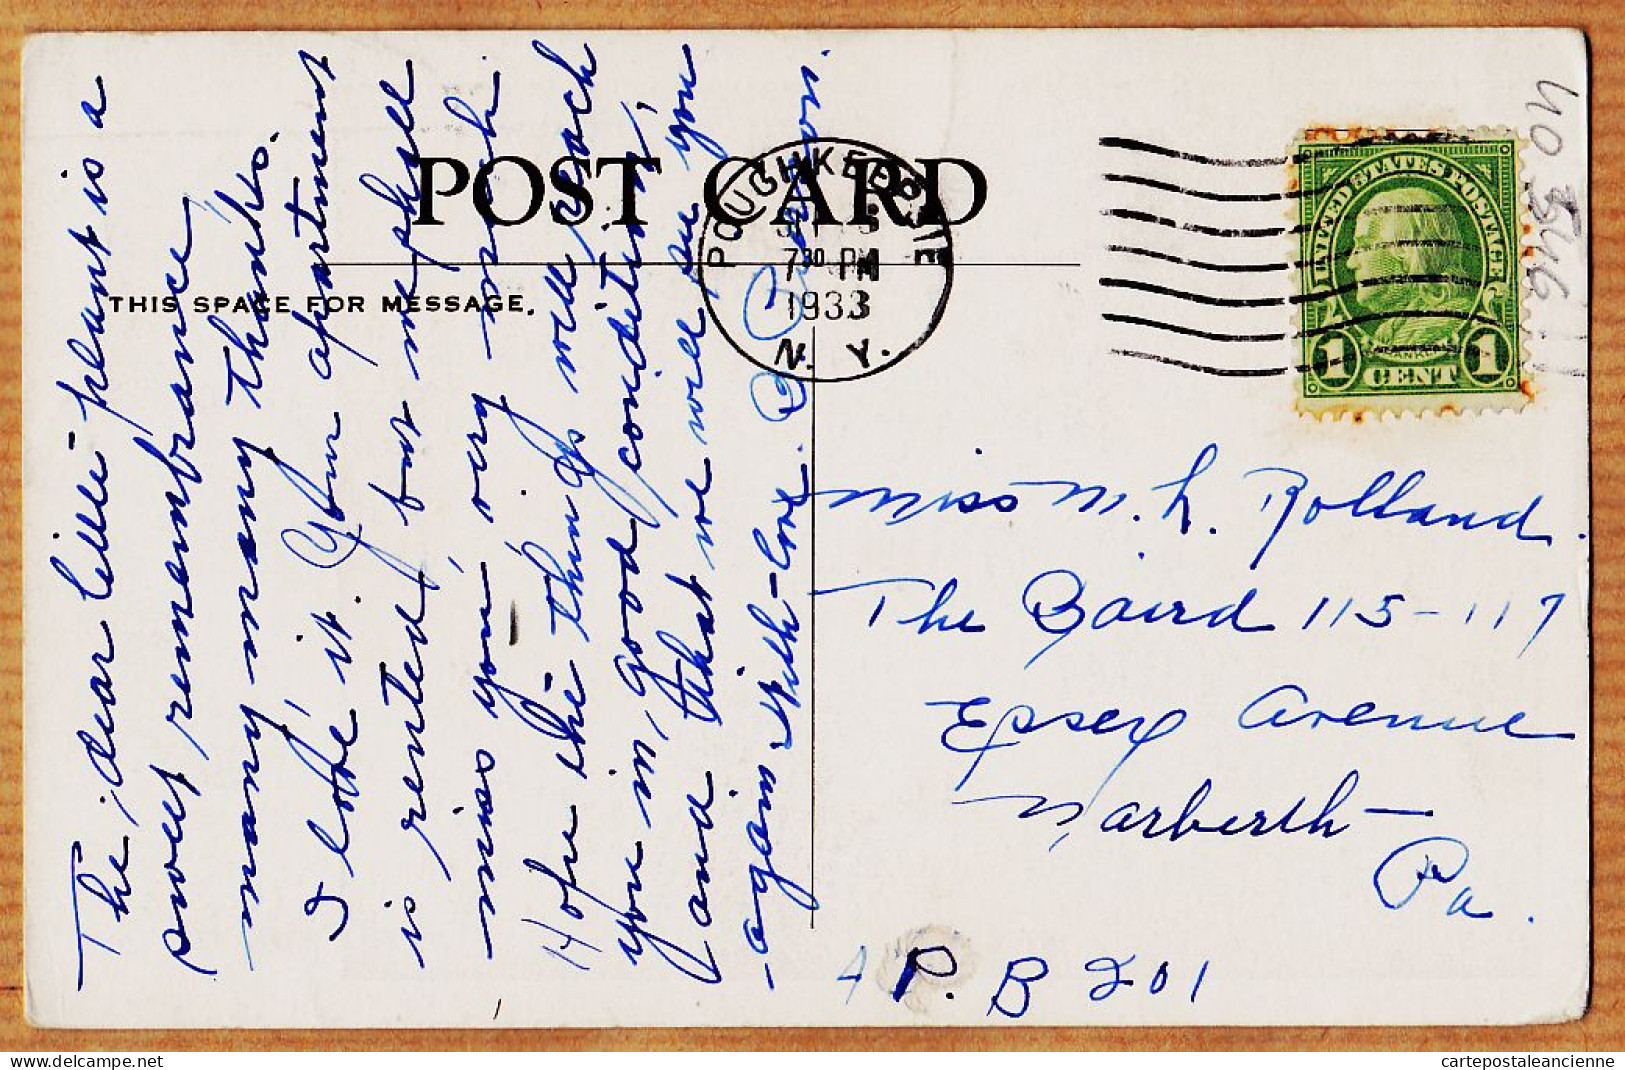 POST CARD
THIS SPACE FOR MESSAGE.
POUGHKEEPSIE
7 30 PM
1933
N. Y.
UNITED STATES POSTAGE
FRANKLIN
1 CENT 1
The dear little plant is a
sweet remembrance
many many thanks.
I love it. Your apartment
is rented but we shall
miss you very much.
Hope the things will reach
you in good condition,
and that we will see you
again. With love.
Miss M. L. Rolland.
The Baird 115-117
Essex Avenue
Narberth-
Pa.
P.B 201
cartepostaleancienne